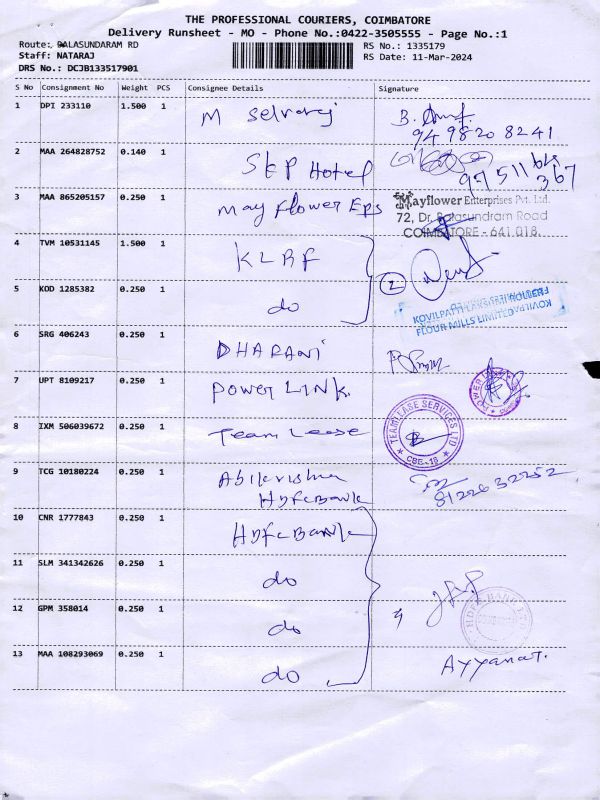 THE PROFESSIONAL COURIERS, COIMBATORE
Delivery Runsheet - MO - Phone No.:0422-3505555 - Page No.:1
Route: BALASUNDARAM RD
RS No.: 1335179
Staff: NATARAJ
RS Date: 11-Mar-2024
DRS No.: DCJB133517901
S No Consignment No Weight PCS Consignee Details Signature
1 DPI 233110 1.500 1 M Selvaraj B.
94 9820 8241
2 MAA 264828752 0.140 1 SKP Hotel
97511 367
3 MAA 865205157 0.250 1 May flower Eps
Mayflower Enterprises Pvt. Ltd.
72, Dr. Balasundram Road
COIMBATORE - 641 018.
4 TVM 10531145 1.500 1 KLRF 2
5 KOD 1285382 0.250 1 do
KOVILPATTI LAKSHMI ROLLER
FLOUR MILLS LIMITED
6 SRG 406243 0.250 1 DHARANI
7 UPT 8109217 0.250 1 POWER LINK
POWER
8 IXM 506039672 0.250 1 Team Lease
TEAM LEASE SERVICES LTD
CBE-18
9 TCG 10180224 0.250 1 Abikrishna
HDFC Bank
81226 32252
10 CNR 1777843 0.250 1 HDFC Bank
11 SLM 341342626 0.250 1 do
12 GPM 358014 0.250 1 do 4
HDFC BANK LTD
13 MAA 108293069 0.250 1 do Ayyanar.